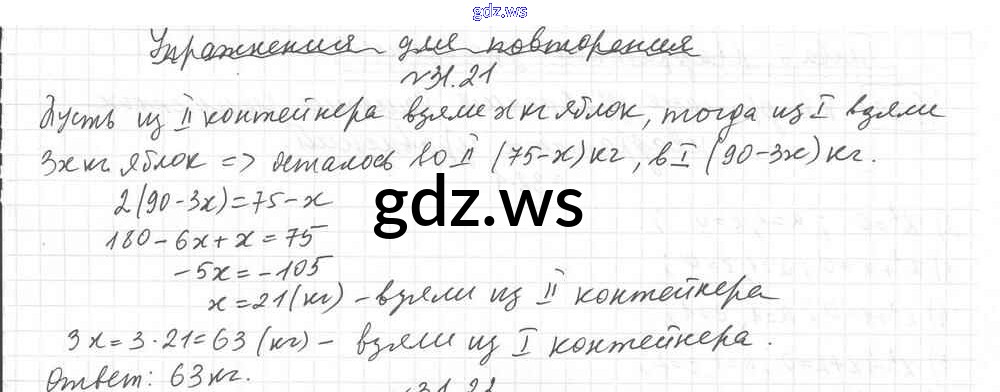 gdz.ws
Упражнения для повторения
№31.21
Пусть из II контейнера взяли x кг яблок, тогда из I взяли
3x кг яблок => осталось во II (75-x) кг, в I (90-3x) кг.
2(90-3x)=75-x
gdz.ws
180-6x+x=75
-5x=-105
x=21(кг) - взяли из II контейнера
3x=3·21=63 (кг) - взяли из I контейнера.
Ответ: 63кг.
31.22